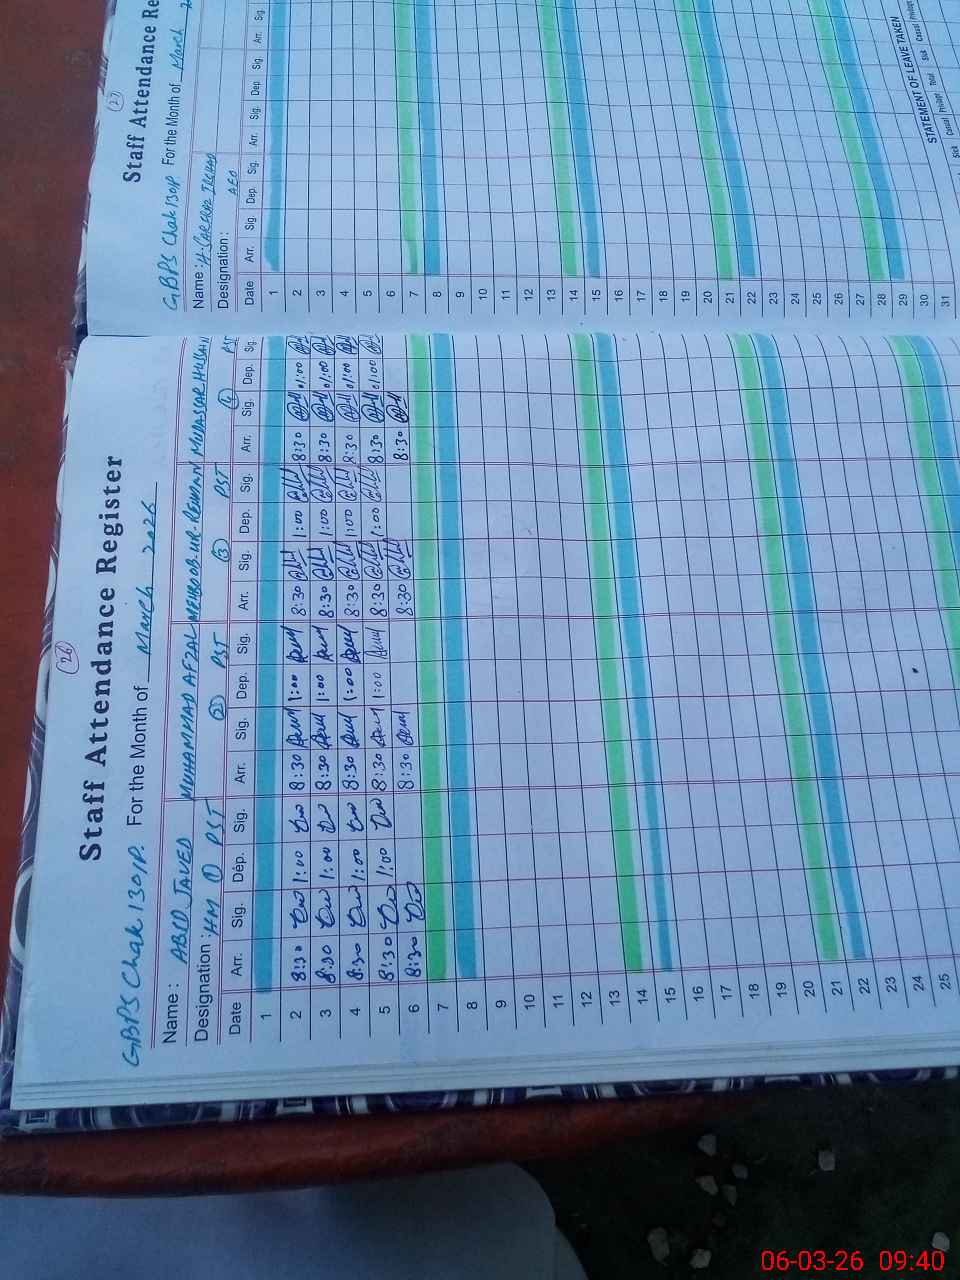 (26)
Staff Attendance Register
GBPS Chak 130/P. For the Month of March 2026
Name : ABID JAVED MUHAMMAD AFZAL MEHBOOB-UR-REHMAN MUDASSAR HUSSAIN
Designation : HM (1) PST (2) PST (3) PST (4) PST
Date Arr. Sig. Dep. Sig. Arr. Sig. Dep. Sig. Arr. Sig. Dep. Sig. Arr. Sig. Dep. Sig.
1
2 8:30 1:00 8:30 1:00 8:30 1:00 8:30 01:00
3 8:30 1:00 8:30 1:00 8:30 1:00 8:30 01:00
4 8:30 1:00 8:30 1:00 8:30 1:00 8:30 01:00
5 8:30 1:00 8:30 1:00 8:30 1:00 8:30 01:00
6 8:30 8:30 8:30 8:30
7
8
9
10
11
12
13
14
15
16
17
18
19
20
21
22
23
24
25
(27)
Staff Attendance Re
GBPS Chak 130/P For the Month of March 2
Name :
Designation : AEO
Date Arr. Sig. Dep. Sig. Arr. Sig. Dep. Sig. Arr. Sig.
1
2
3
4
5
6
7
8
9
10
11
12
13
14
15
16
17
18
19
20
21
22
23
24
25
26
27
28
29
30
31
STATEMENT OF LEAVE TAKEN
Sick Casual Privilage Total Sick Casual Privilag
06-03-26 09:40